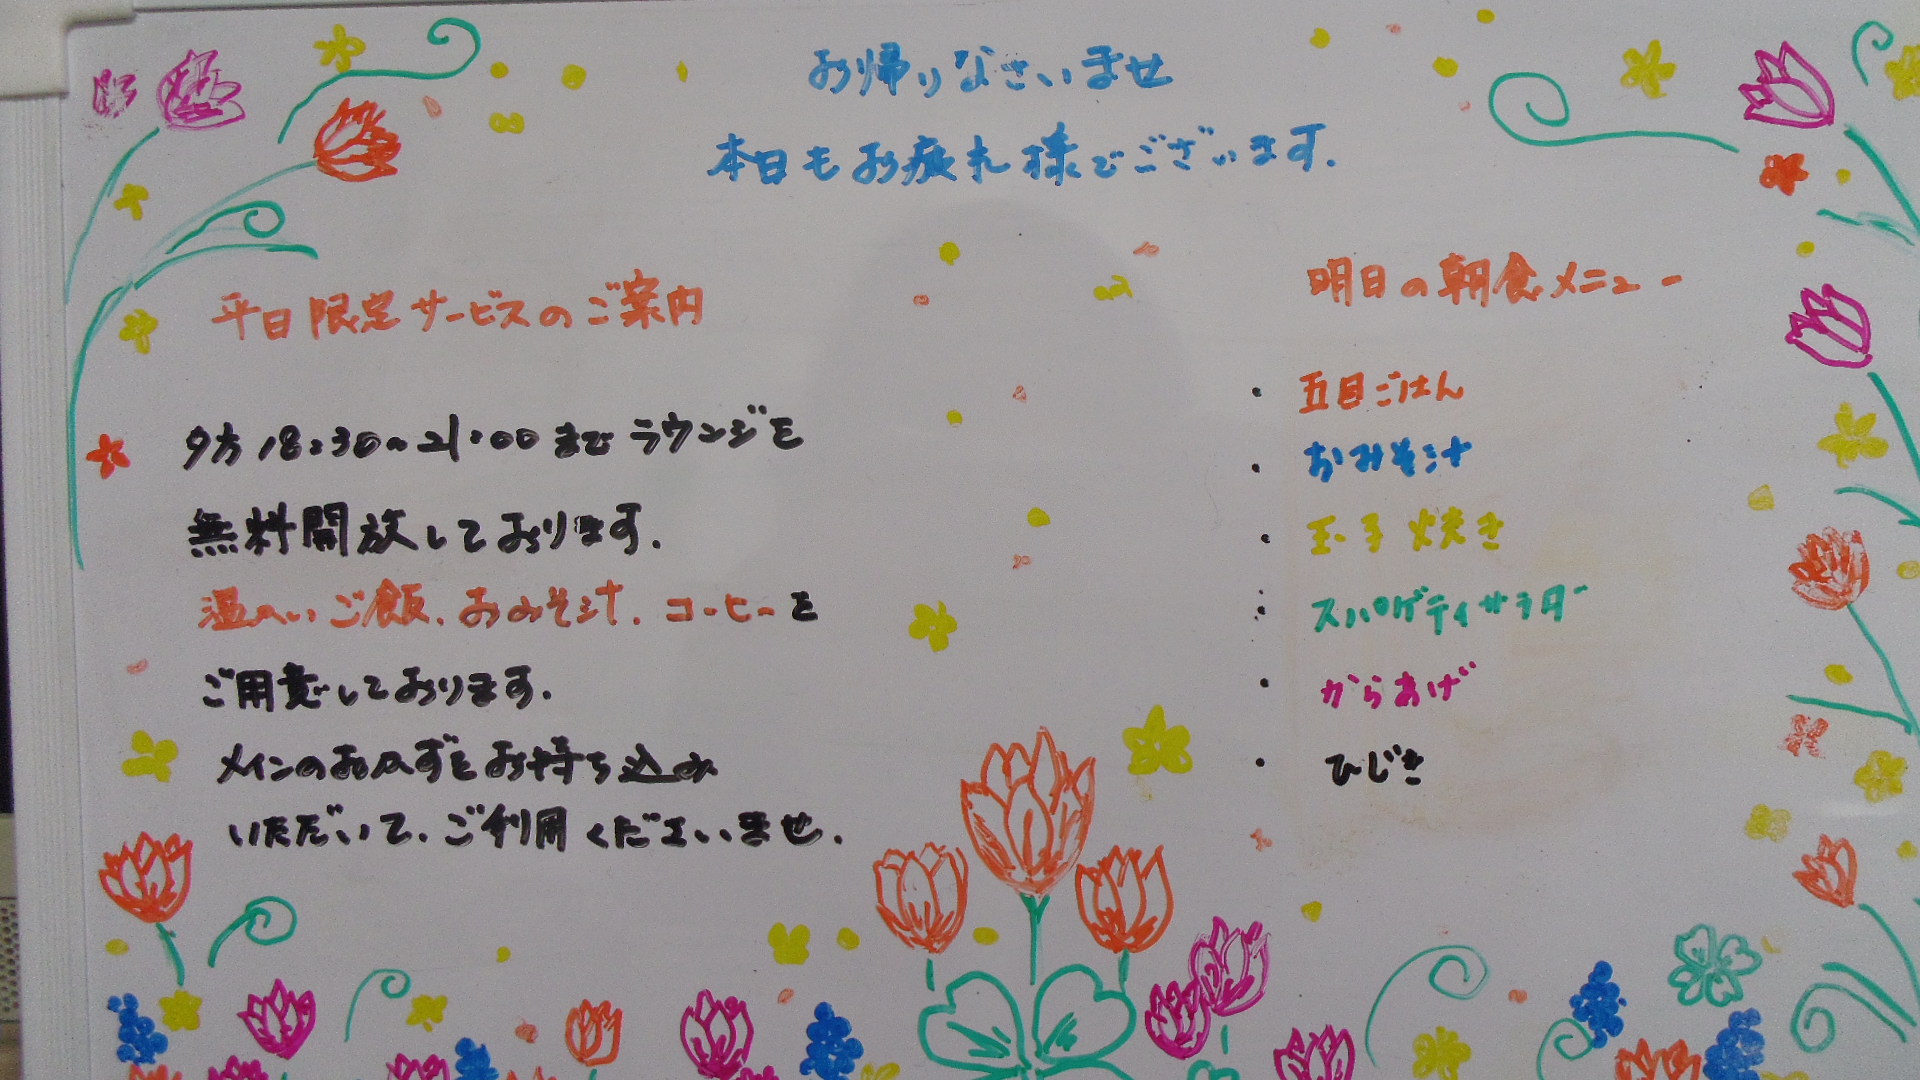 お帰りなさいませ
本日もお疲れ様でございます.
平日限定サービスのご案内
夕方18:30~21:00までラウンジを
無料開放しております.
温かいご飯.おみそ汁.コーヒーを
ご用意しております.
メインのおかずをお持ち込み
いただいて.ご利用くださいませ.
明日の朝食メニュー
・五目ごはん
・おみそ汁
・玉子焼き
・スパゲティサラダ
・からあげ
・ひじき